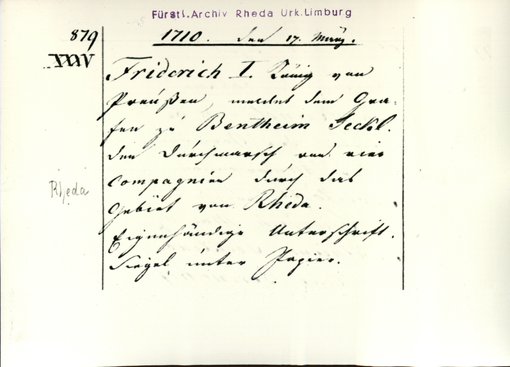 Fürstl. Archiv Rheda Urk. Limburg
879
XXIV
1710. den 17. März.
Friderich I. König von
Preußen, meldet dem Gra-
fen zu Bentheim Teckl.
den Durchmarsch von vier
Compagnien durch das
Gebiet von Rheda.
Eigenhändige Unterschrift.
Siegel unter Papier.
Rheda